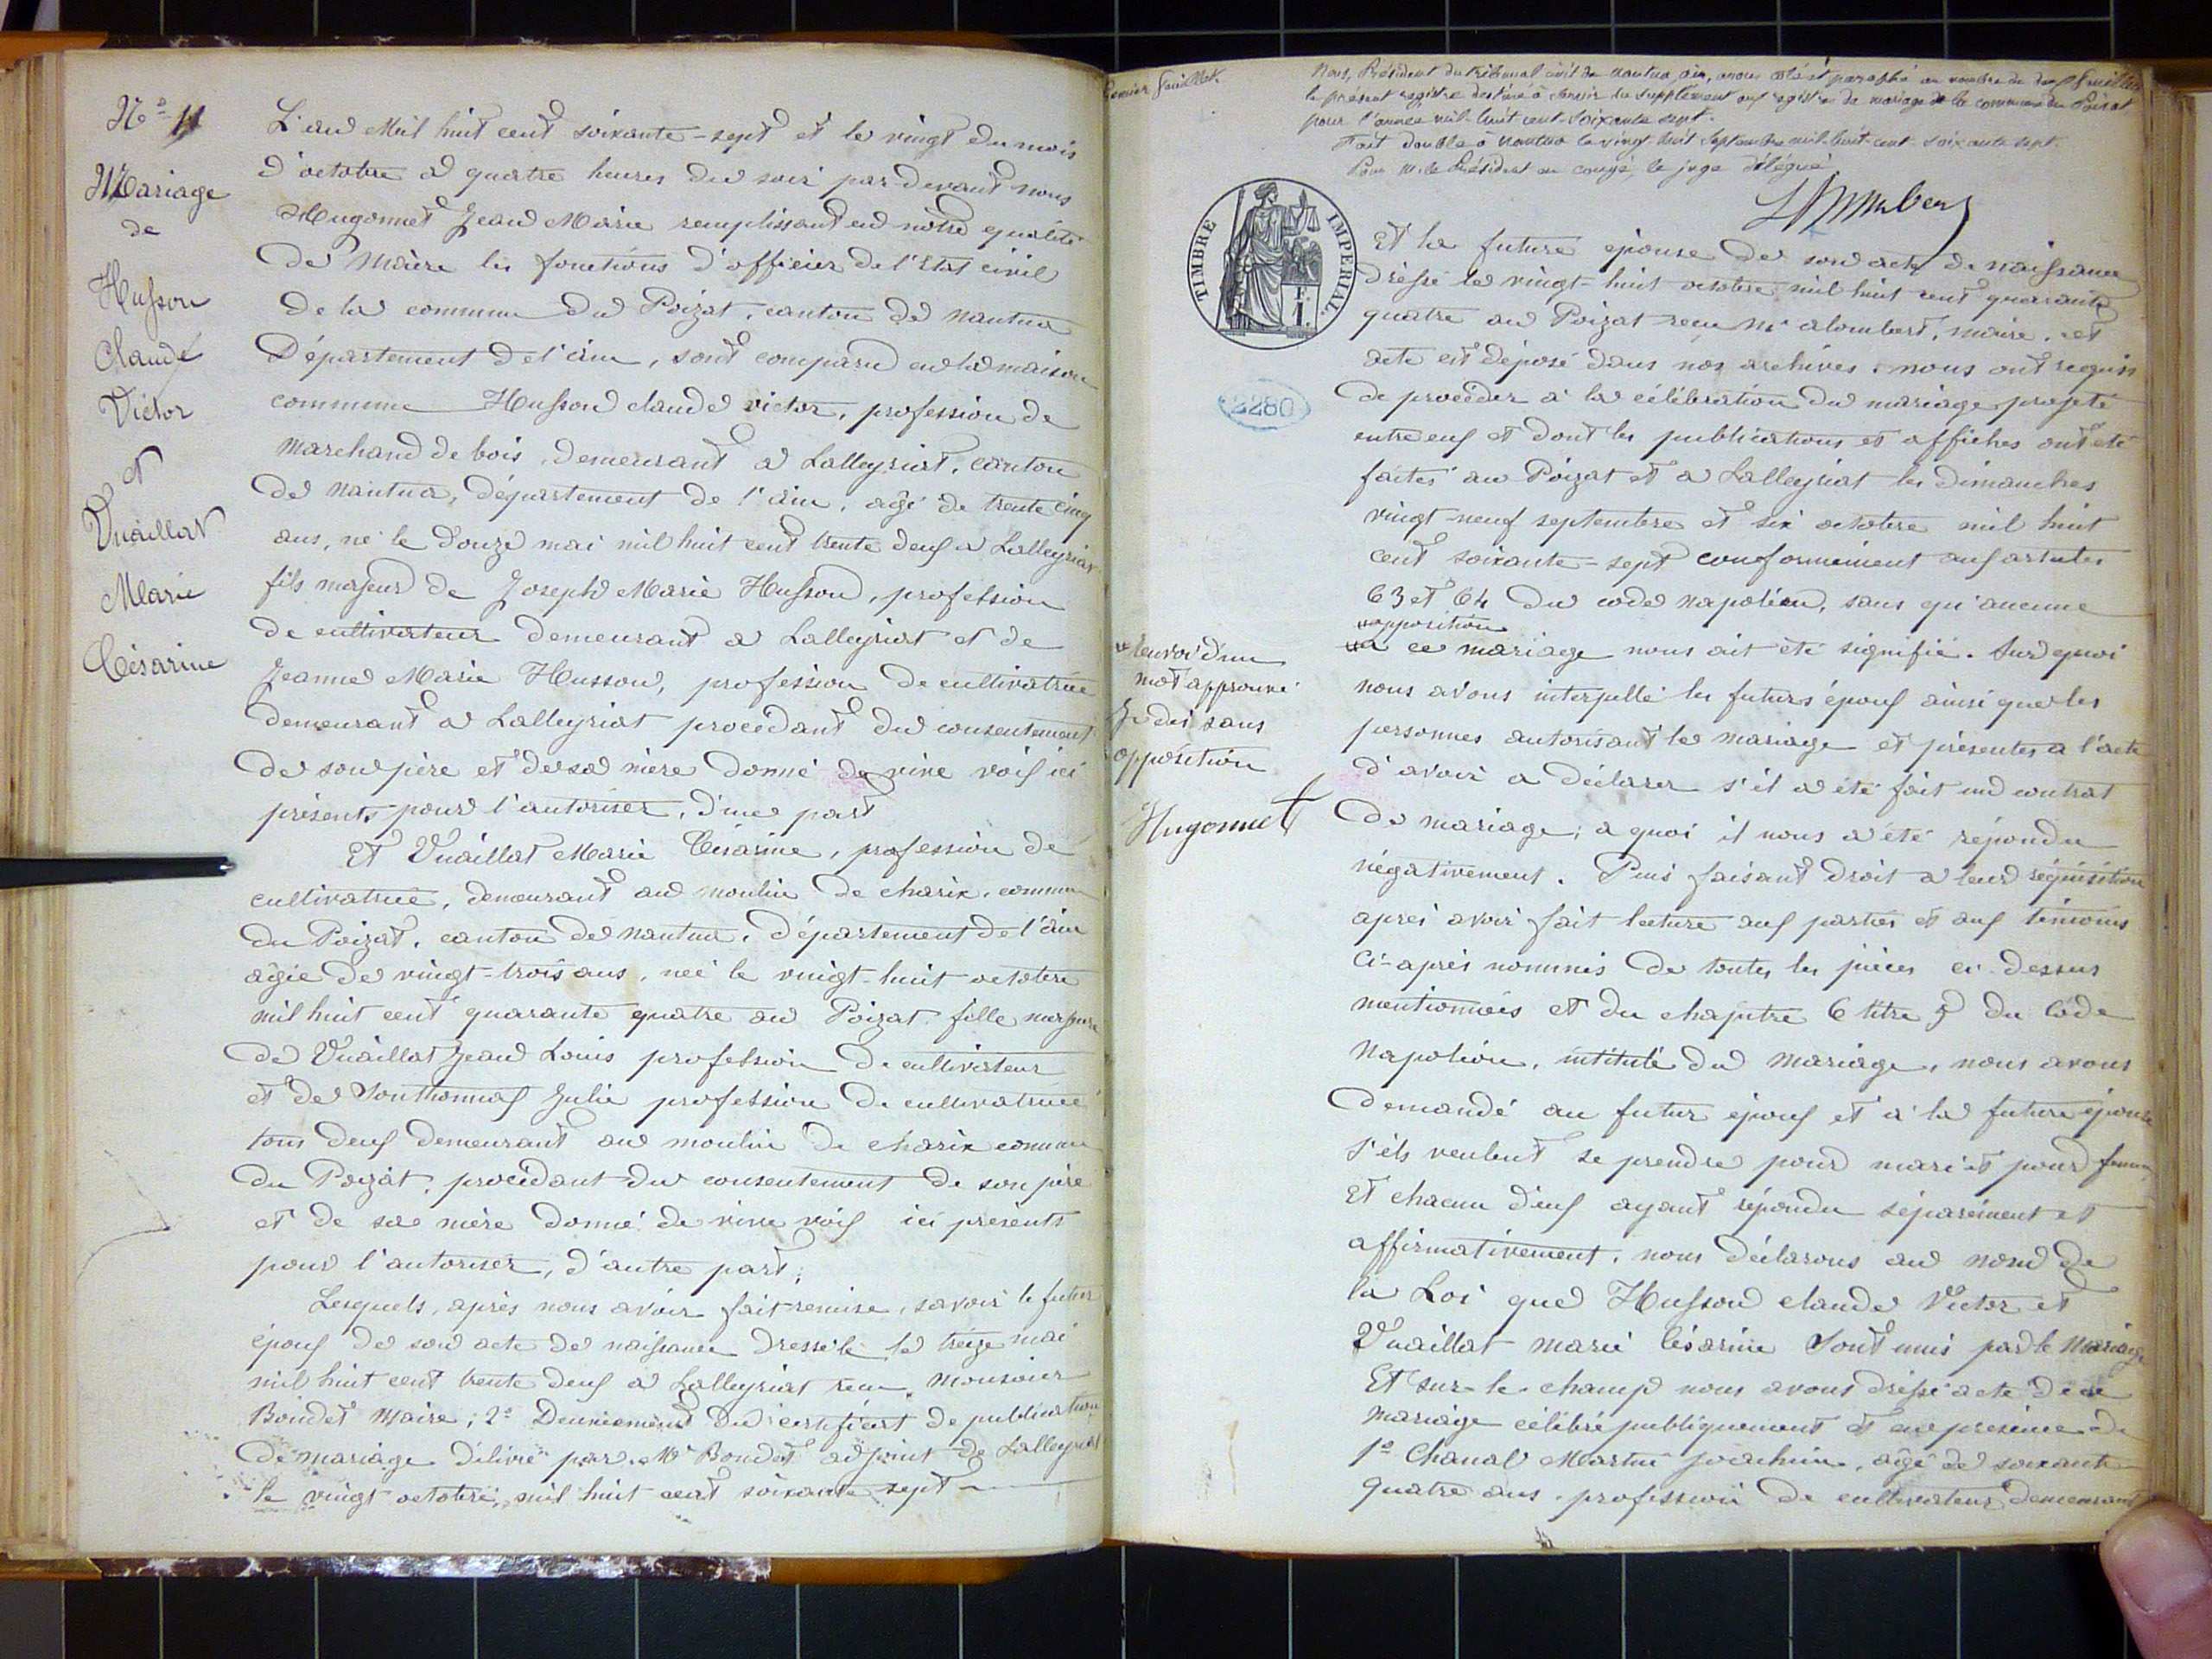 N° 11
Mariage
de
Husson
Claude
Victor
et
Vuaillat
Marie
Césarine
L'an Mil huit cent soixante-sept et le vingt du mois
d'octobre à quatre heures du soir par-devant nous
Hugonnet Jean Marie remplissant en notre qualité
de Maire les fonctions d'officier de l'Etat civil
de la commune du Poizat, canton de nantua
Département de l'ain, sont comparu en la maison
commune Husson claude victor, profession de
marchand de bois, demeurant a Lalleyriat, canton
de nantua, département de l'ain, agé de trente cinq
ans, né le douze mai mil huit cent trente deux a Lalleyriat
fils majeur de Joseph Marie Husson, profession
de cultivateur demeurant a Lalleyriat et de
Jeanne Marie Husson, profession de cultivatrice
demeurant a Lalleyriat procédant du consentement
de son père et de sa mère donné de vive voix ici
présents pour l'autoriser, d'une part
Et Vuaillat Marie Césarine, profession de
cultivatrice, demeurant au moulin de charix, commune
du Poizat, canton de nantua, département de l'ain
agée de vingt-trois ans, née le vingt-huit octobre
mil huit cent quarante quatre au Poizat fille majeure
de Vuaillat Jean Louis profession de cultivateur
et de Sonthonnax Julie profession de cultivatrice
tous deux demeurant au moulin de charix commune
du Poizat, procédant du consentement de son père
et de sa mère donné de vive voix ici présents
pour l'autoriser, d'autre part;
Lesquels, après nous avoir fait remise, savoir le futur
époux de son acte de naissance dressé le le treize mai
mil huit cent trente deux a Lalleyriat reçu monsieur
Boudet Maire; 2° du certificat de publication
de mariage délivré par Mr Boudet adjoint de Lalleyriat
le vingt octobre, mil huit cent soixante sept
Premier feuillet
Nous, Président du tribunal civil de nantua, ain, avons coté et paraphé au nombre de deux feuillets
le présent registre destiné à servir de supplément aux registres de mariage de la commune du Poizat
pour l'année mil-huit cent-soixante sept.
Fait double à nantua le vingt huit septembre mil-huit-cent soixante sept.
Pour M. le Président en congé, le juge délégué
TIMBRE IMPERIAL
1 F.
2280
Et la future épouse de son acte de naissance
dressé le vingt-huit octobre mil huit cent quarante
quatre au Poizat reçu Mr alombert, maire, cet
acte est déposé dans nos archives nous ont requis
de procéder à la célébration du mariage projeté
entre eux et dont les publications et affiches ont été
faites au Poizat et a Lalleyriat les dimanches
vingt-neuf septembre et six octobre mil huit
cent soixante-sept conformément aux articles
63 et 64 du code napoléon, sans qu'aucune
opposition
a ce mariage nous ait été signifiée. Sur quoi
nous avons interpellé les futurs époux ainsi que les
personnes autorisant le mariage et présentes a l'acte
d'avoir a déclarer s'il a été fait un contrat
de mariage; a quoi il nous a été répondu
négativement. Puis faisant droit a leur réquisition
après avoir fait lecture aux parties et aux témoins
ci-après nommés de toutes les pièces ci-dessus
mentionnées et du chapitre 6 titre 5 du Code
Napoléon, intitulé du mariage, nous avons
demandé au futur époux et a la future épouse
s'ils veulent se prendre pour mari et pour femme
Et chacun d'eux ayant répondu séparément et
affirmativement, nous déclarons au nom de
la Loi que Husson claude Victor et
Vuaillat marie Césarine sont unis par le Mariage
Et sur le champ nous avons dressé acte de ce
mariage célébré publiquement et en présence de
1° Chanal Martin joachim, agé de soixante
quatre ans, profession de cultivateur demeurant
renvoi d'un
mot approuvé
sans
opposition
Hugonnet